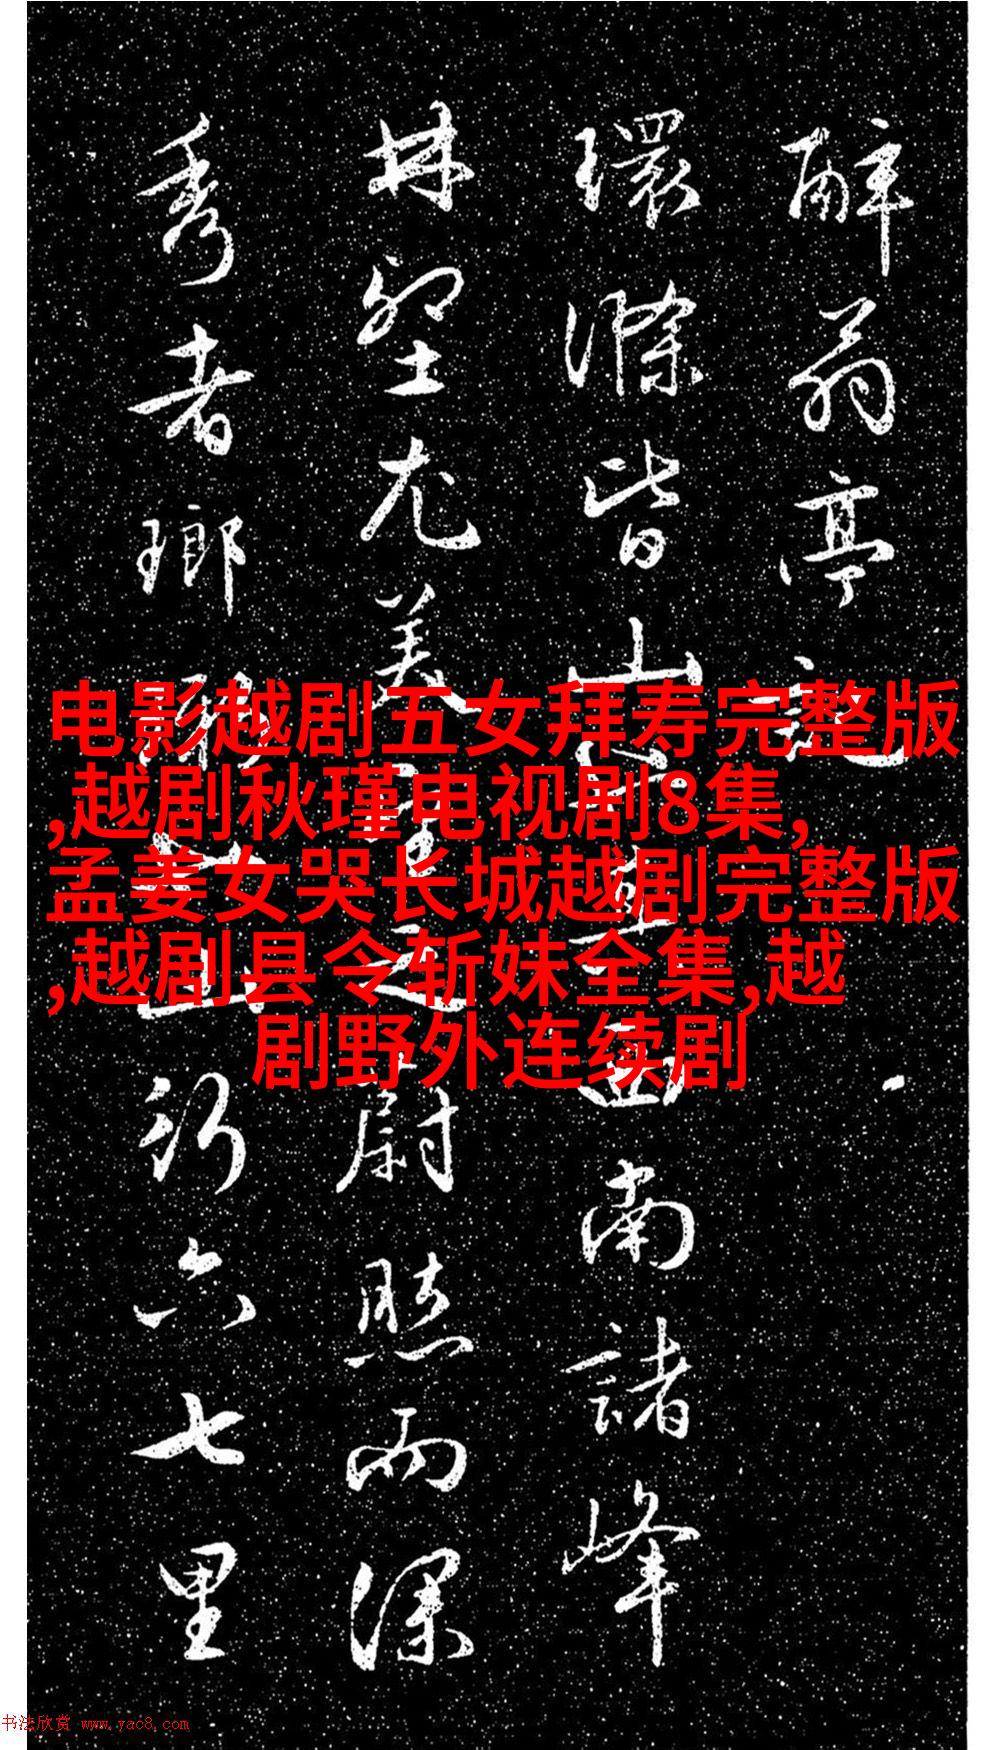 醉翁亭記
環滁皆山也其西南諸峰
林壑尤美望之蔚然而深
秀者瑯琊也山行六七里
电影越剧五女拜寿完整版
,越剧秋瑾电视剧8集,
孟姜女哭长城越剧完整版
,越剧县令斩妹全集,越
剧野外连续剧
书法欣赏 www.yac8.com